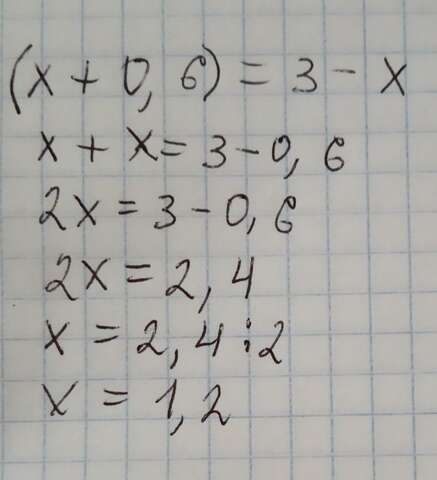 (x + 0, 6) = 3 - x
x + x = 3 - 0, 6
2x = 3 - 0, 6
2x = 2, 4
x = 2, 4 : 2
x = 1, 2